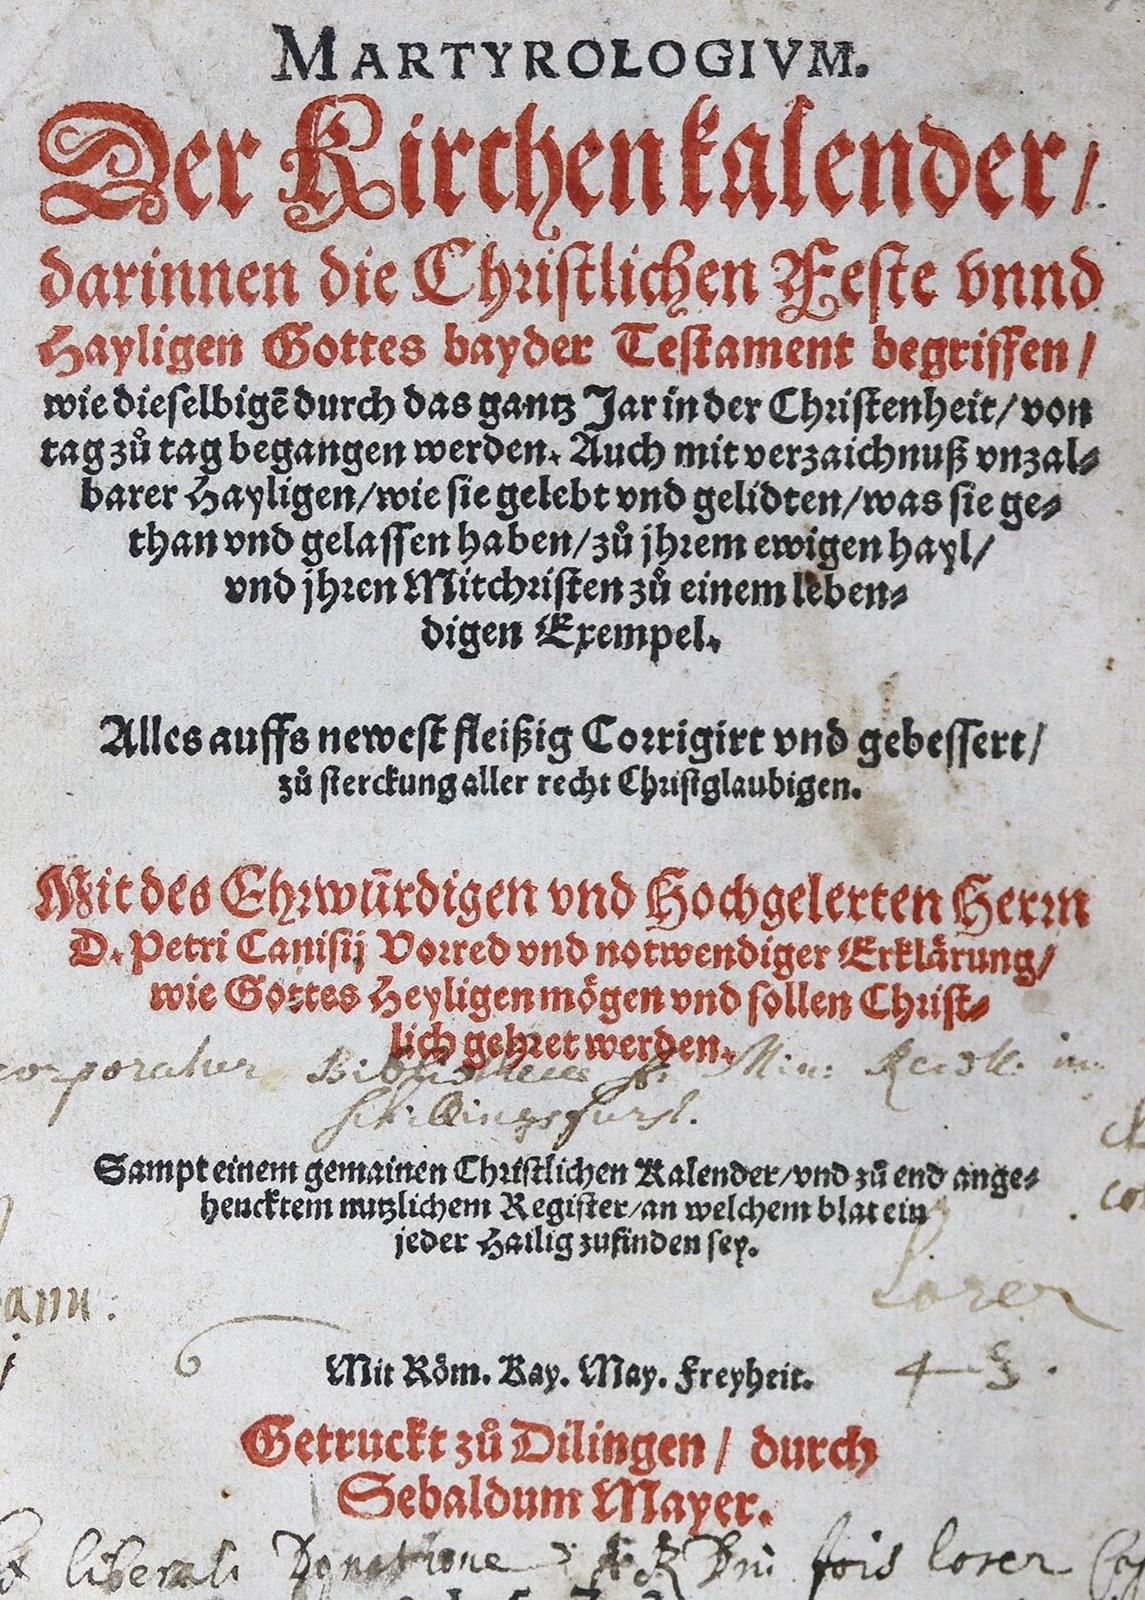 MARTYROLOGIVM.
Der Kirchenkalender/
darinnen die Christlichen Feste vnnd
Hayligen Gottes bayder Testament begriffen/
wie dieselbigē durch das gantz Jar in der Christenheit/ von
tag zů tag begangen werden. Auch mit verzaichnuß vnzal-
barer Hayligen/ wie sie gelebt vnd gelidten/ was sie ge-
than vnd gelassen haben/ zů jhrem ewigen hayl/
vnd jhren Mitchristen zů einem leben-
digen Exempel.
Alles auffs newest fleißig Corrigirt vnd gebessert/
zů sterckung aller recht Christglaubigen.
Mit des Ehrwürdigen vnd Hochgelerten Herrn
D. Petri Canisij Vorred vnd notwendiger Erklärung/
wie Gottes Heyligen mögen vnd sollen Christ-
lich gehret werden.
Schillingsfürst.
Sampt einem gemainen Christlichen Kalender/ vnd zů end ange-
hencktem nutzlichem Register/ an welchem blat ein
jeder Hailig zufinden sey.
Lorer
Mit Röm. Kay. May. Freyheit.
Getruckt zů Dilingen/ durch
Sebaldum Mayer.
liberali Donatione